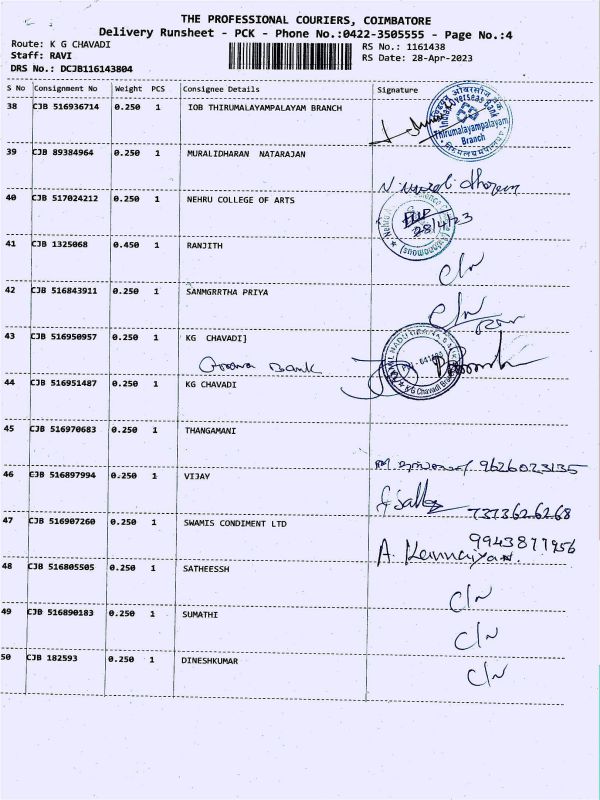 THE PROFESSIONAL COURIERS, COIMBATORE
Delivery Runsheet - PCK - Phone No.:0422-3505555 - Page No.:4
Route: K G CHAVADI
Staff: RAVI
DRS No.: DCJB116143804
RS No.: 1161438
RS Date: 28-Apr-2023
S No Consignment No Weight PCS Consignee Details Signature
38 CJB 516936714 0.250 1 IOB THIRUMALAYAMPALAYAM BRANCH
Indian Overseas Bank
Thirumalayampalayam
Branch
39 CJB 89384964 0.250 1 MURALIDHARAN NATARAJAN
40 CJB 517024212 0.250 1 NEHRU COLLEGE OF ARTS
28/4/23
41 CJB 1325068 0.450 1 RANJITH
C/N
42 CJB 516843911 0.250 1 SANMGRRTHA PRIYA
C/N
43 CJB 516950957 0.250 1 KG CHAVADI]
Bank
K G Chavadi Branch
44 CJB 516951487 0.250 1 KG CHAVADI
45 CJB 516970683 0.250 1 THANGAMANI
9626023135
46 CJB 516897994 0.250 1 VIJAY
7373626268
47 CJB 516907260 0.250 1 SWAMIS CONDIMENT LTD
9943877956
A. Kannaiyan.
48 CJB 516805505 0.250 1 SATHEESSH
C/N
49 CJB 516890183 0.250 1 SUMATHI
C/N
50 CJB 182593 0.250 1 DINESHKUMAR
C/N